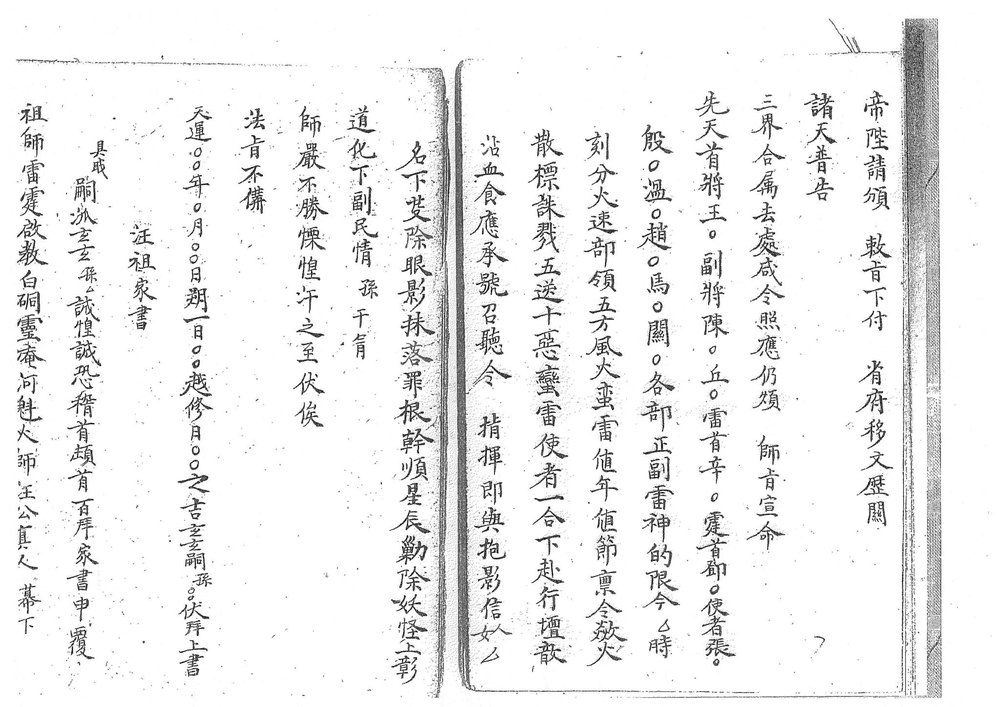 帝陛請頒　敕旨下付　省府移文歷關
諸天普告
三界合属去處咸令照應仍煩　師旨宣命
先天首將王○副將陳○丘○雷首辛○霆首鄧○使者張○
殷○溫○趙○馬○關○各部正副雷神的限今厶時
刻分火速部領五方風火蛮雷値年値節禀令欻火
散標誅戮五送十惡蠻雷使者一合下赴行壇歆
沾血食應承號召聽令　指揮即與抱影信女厶
名下隻除眼影抹落罪根幹順星辰勦除妖怪上彰
道化下副民情 孫 干冐
師嚴不勝慄惶汗之至伏俟
法旨不備
天運○○年○月○○日朔一日○○越修日○○之吉玄玄嗣孫○伏拜上書
汪祖家書
具戒嗣派玄玄孫厶誠惶誠恐稽首頓首百拜家書申覆
祖師雷霆啟教白硐靈庵河魁火師汪公真人　幕下